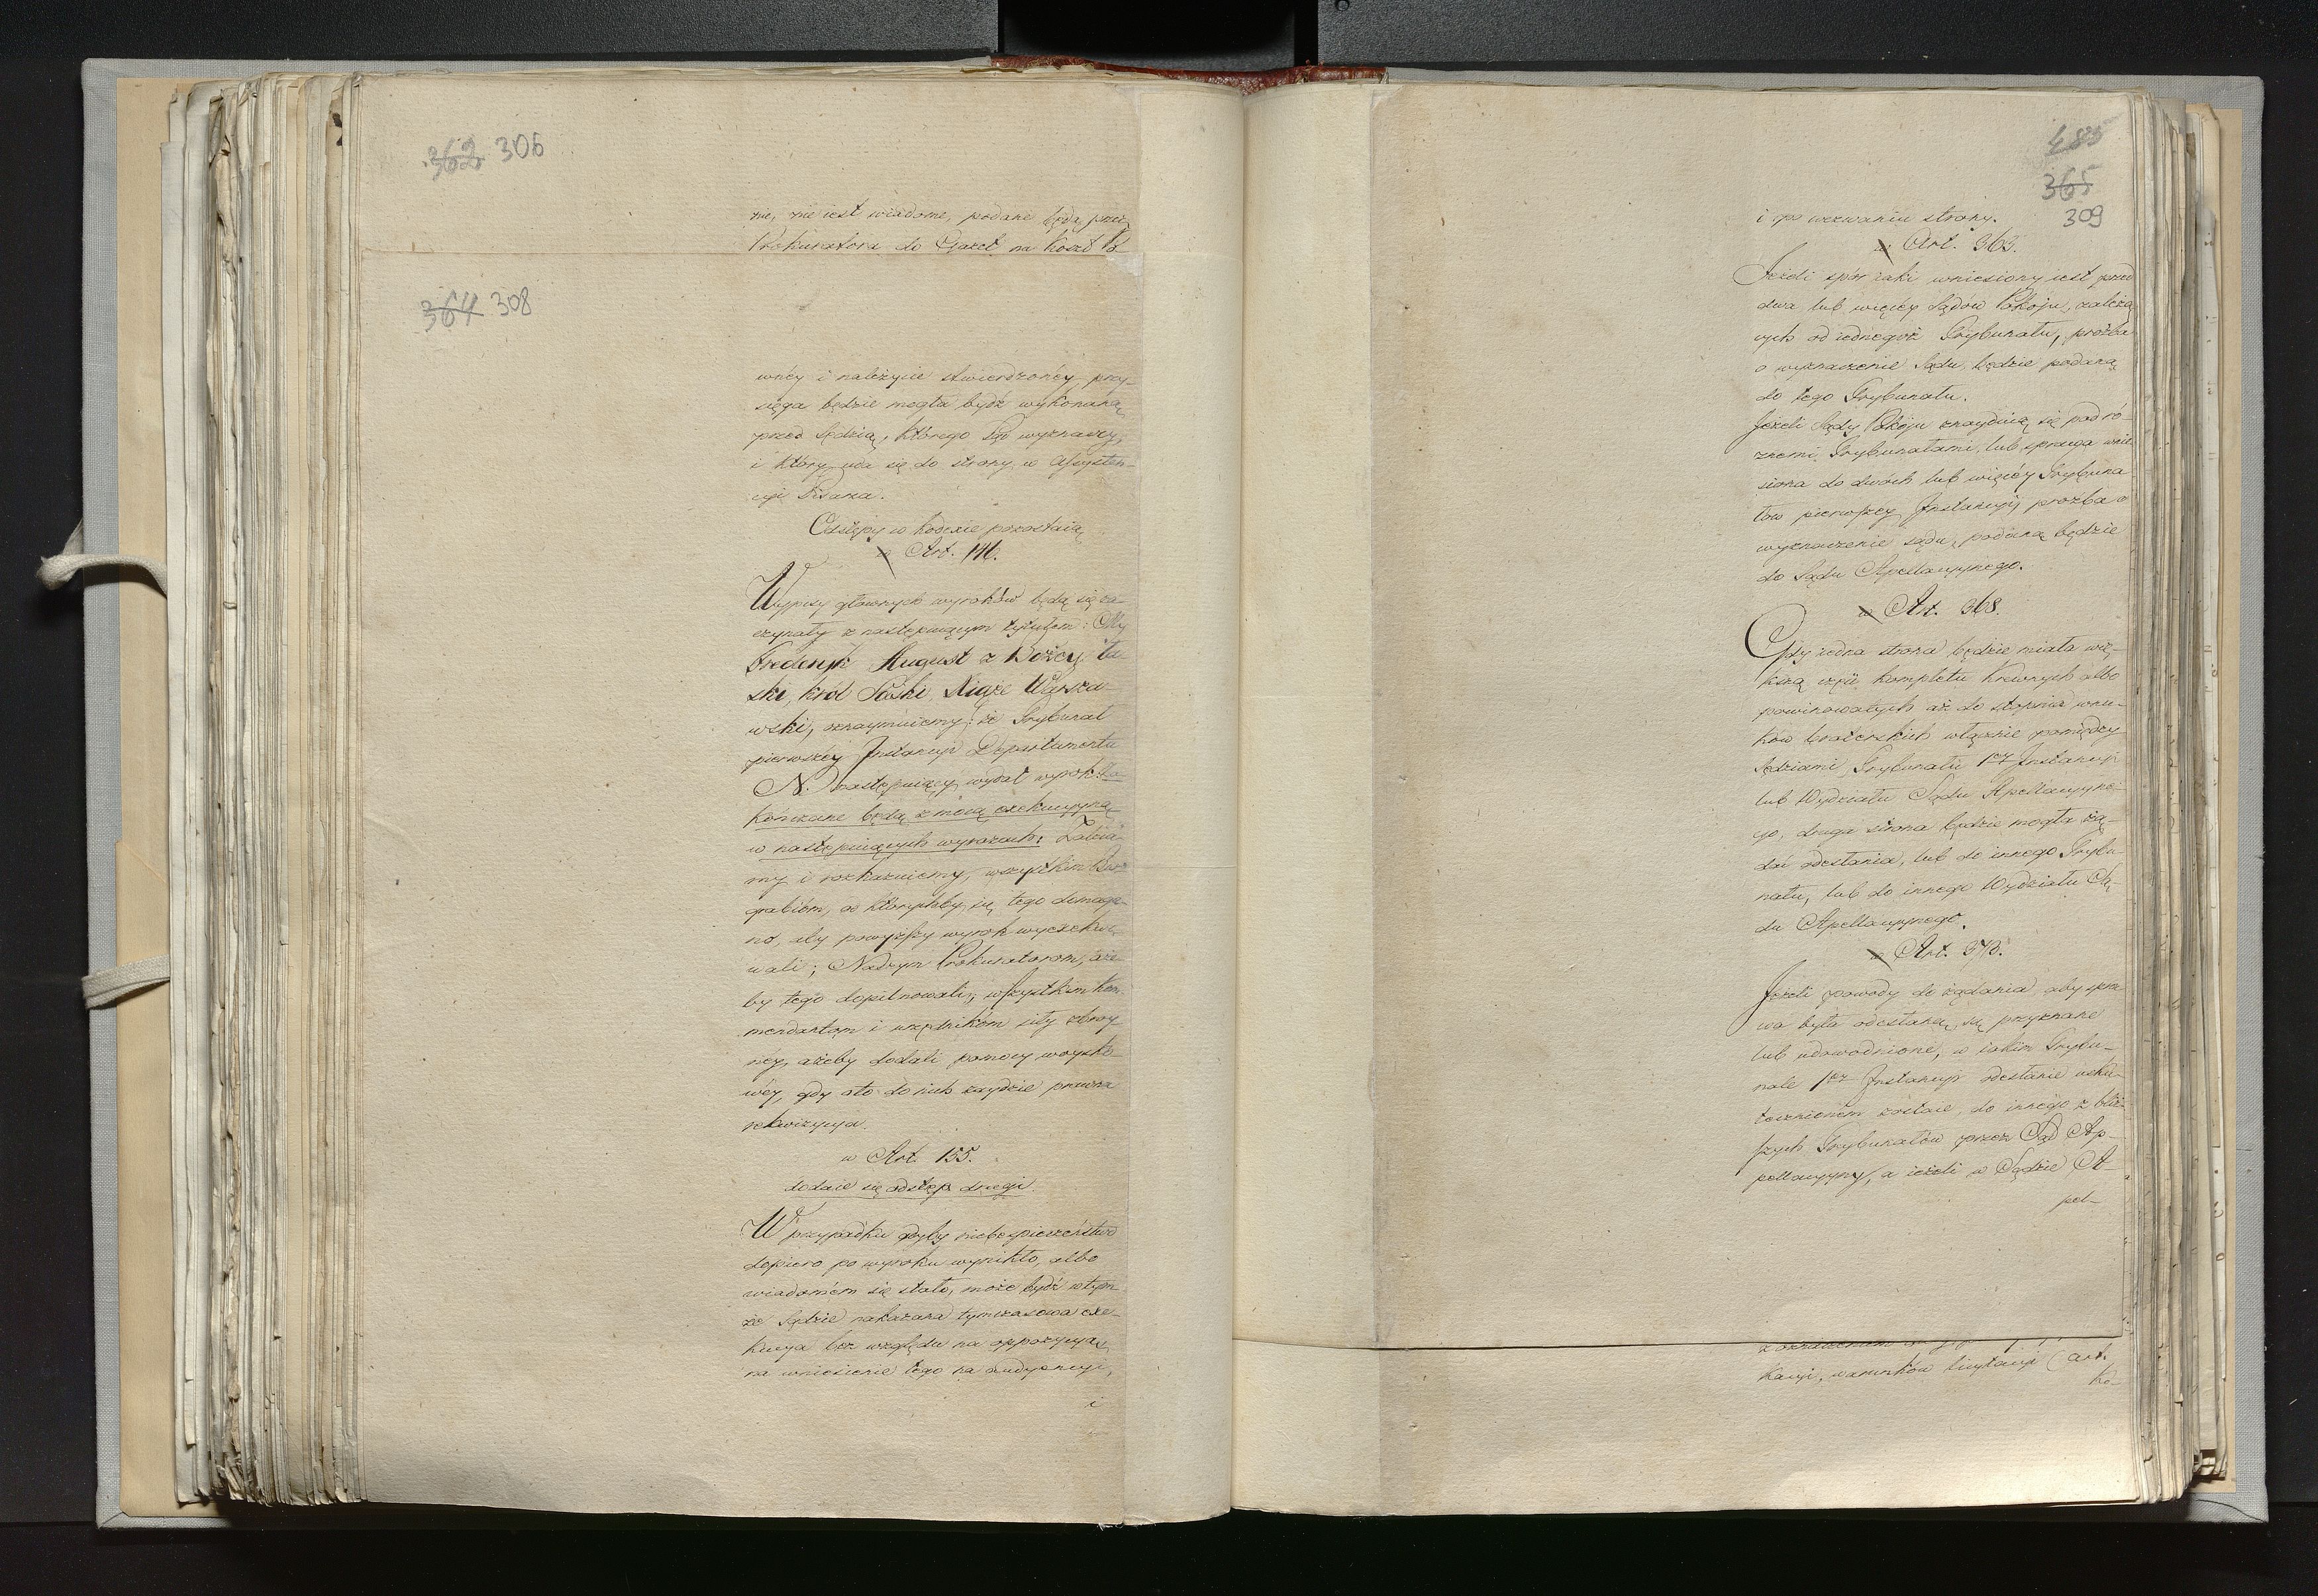 362 306
ne, nie iest wiadome, podane będą przez
Prokuratora do Gazet na koszt
364 308
wney i należycie stwierdzoney, przy-
sięga będzie mogła bydź wykonaną
przed Sędzią, którego Sąd wyznaczy,
i który uda się do strony, w assysten-
cyi Pisarza.
Odstępy w kodexie pozostaią
w Art. 146.
Wypisy głównych wyroków będą się za-
czynały z następuiącym tytułem: My
Frederyk August z Bożey ła-
ski, król Saski, Xiąże Warsza-
wski, oznaymuiemy; że Trybunał
pierwszey Instancyi Departamentu
N. następuiący wydał wyrok: Za-
kończane będą z mocą exekucyyną
w następuiących wyrazach: Zaleca-
my i rozkazuiemy, wszystkim Bur-
grabióm, od którychby się tego domaga-
no, aby powyższy wyrok wyexekwo-
wali; Naszym Prokuratorom, aże-
by tego dopilnowali; wszystkim kom-
mendantom i urzędnikóm siły zbroy-
ney, ażeby dodali pomocy woysko-
wéy, gdy oto do nich zaydzie prawna
rekwizycya.
w Art. 155.
dodaie się odstęp drugi.
W przypadku gdyby niebezpieczeństwo
dopiero po wyroku wynikło, albo
wiadomem się stało, może bydź w tym-
że Sądzie nakazana tymczasowa exe-
kucya bez względu na oppozycyą,
na wniesienie tego na audyencyi,
i
485
365
309
i po wezwaniu strony.
w Art. 363.
Jeżeli spór iaki wniesiony iest przed
dwa lub więcey Sądów Pokoju, zależą-
cych od iednegoż Trybunału, prożba
o wyznaczenie Sądu, będzie podaną
do tego Trybunału.
Jeżeli Sądy Pokoju znayduią się pod ró-
żnemi Trybunałami, lub sprawa wnie-
siona do dwóch lub więcéy Trybuna-
łów pierwszey Instancyi, prożba o
wyznaczenie sądu, podaną będzie
do Sądu Apellacyynego.
w Art. 368.
Gdy iedna strona będzie miała wię-
kszą częśc kompletu Krewnych albo
powinowatych aż do stopnia wnu-
ków braterskich włącznie pomiędzy
Sędziami Trybunału 1ey Instancyi
lub Wydziału Sądu Apellacyyne-
go, druga strona będzie mogła żą-
dać odesłania, lub do innego Trybu-
nału, lub do innego Wydziału Są-
du Apellacyynego.
w Art. 373.
Jeżeli powody do żądania, aby spra-
wa była odesłaną, są przyznane
lub udowodnione, w iakim Trybu-
nale 1ey Instancyi odesłanie usku-
tecznionem zostaie, do innego z bliż-
szych Trybunałów przez Sąd Ap-
pellacyyny, a ieżeli w Sądzie A-
pel-
kacyi, warunków licytacyi (art.
ko-